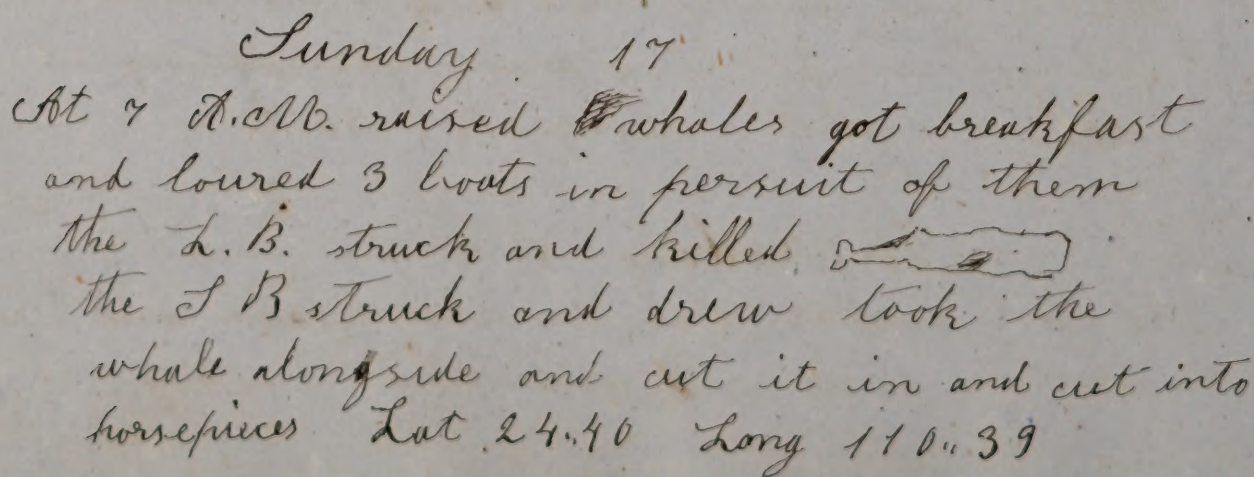 Sunday 17
At 7 A.M. raised whales got breakfast
and loured 3 boats in persuit of them
the L. B. struck and killed
the S B struck and drew took the
whale alongside and cut it in and cut into
horsepieces Lat 24..40 Long 110..39